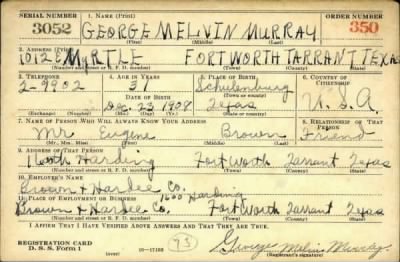 SERIAL NUMBER 1. NAME (Print) ORDER NUMBER
3052 GEORGE MELVIN MURRAY 350
(First) (Middle) (Last)
2. ADDRESS (Print)
1012 E MYRTLE FORT WORTH TARRANT TEXAS
(Number and street or R. F. D. number) (Town) (County) (State)
3. TELEPHONE 4. AGE IN YEARS 5. PLACE OF BIRTH 6. COUNTRY OF CITIZENSHIP
2-9902 31 Schulenburg
DATE OF BIRTH (Town or county)
Dec. 23 1908 Texas U.S.A.
(Exchange) (Number) (Mo.) (Day) (Yr.) (State or country)
7. NAME OF PERSON WHO WILL ALWAYS KNOW YOUR ADDRESS 8. RELATIONSHIP OF THAT PERSON
Mr Eugene Brown Friend
(Mr., Mrs., Miss) (First) (Middle) (Last)
9. ADDRESS OF THAT PERSON
Harding Fort Worth Tarrant Texas
(Number and street or R. F. D. number) (Town) (County) (State)
10. EMPLOYER'S NAME
Brown & Hardee Co.
11. PLACE OF EMPLOYMENT OR BUSINESS 1600 Harding
Brown & Hardee Co. Fort Worth Tarrant Texas
(Number and street or R. F. D. number) (Town) (County) (State)
I AFFIRM THAT I HAVE VERIFIED ABOVE ANSWERS AND THAT THEY ARE TRUE.
REGISTRATION CARD
D. S. S. Form 1 George Melvin Murray
(Registrant's signature)